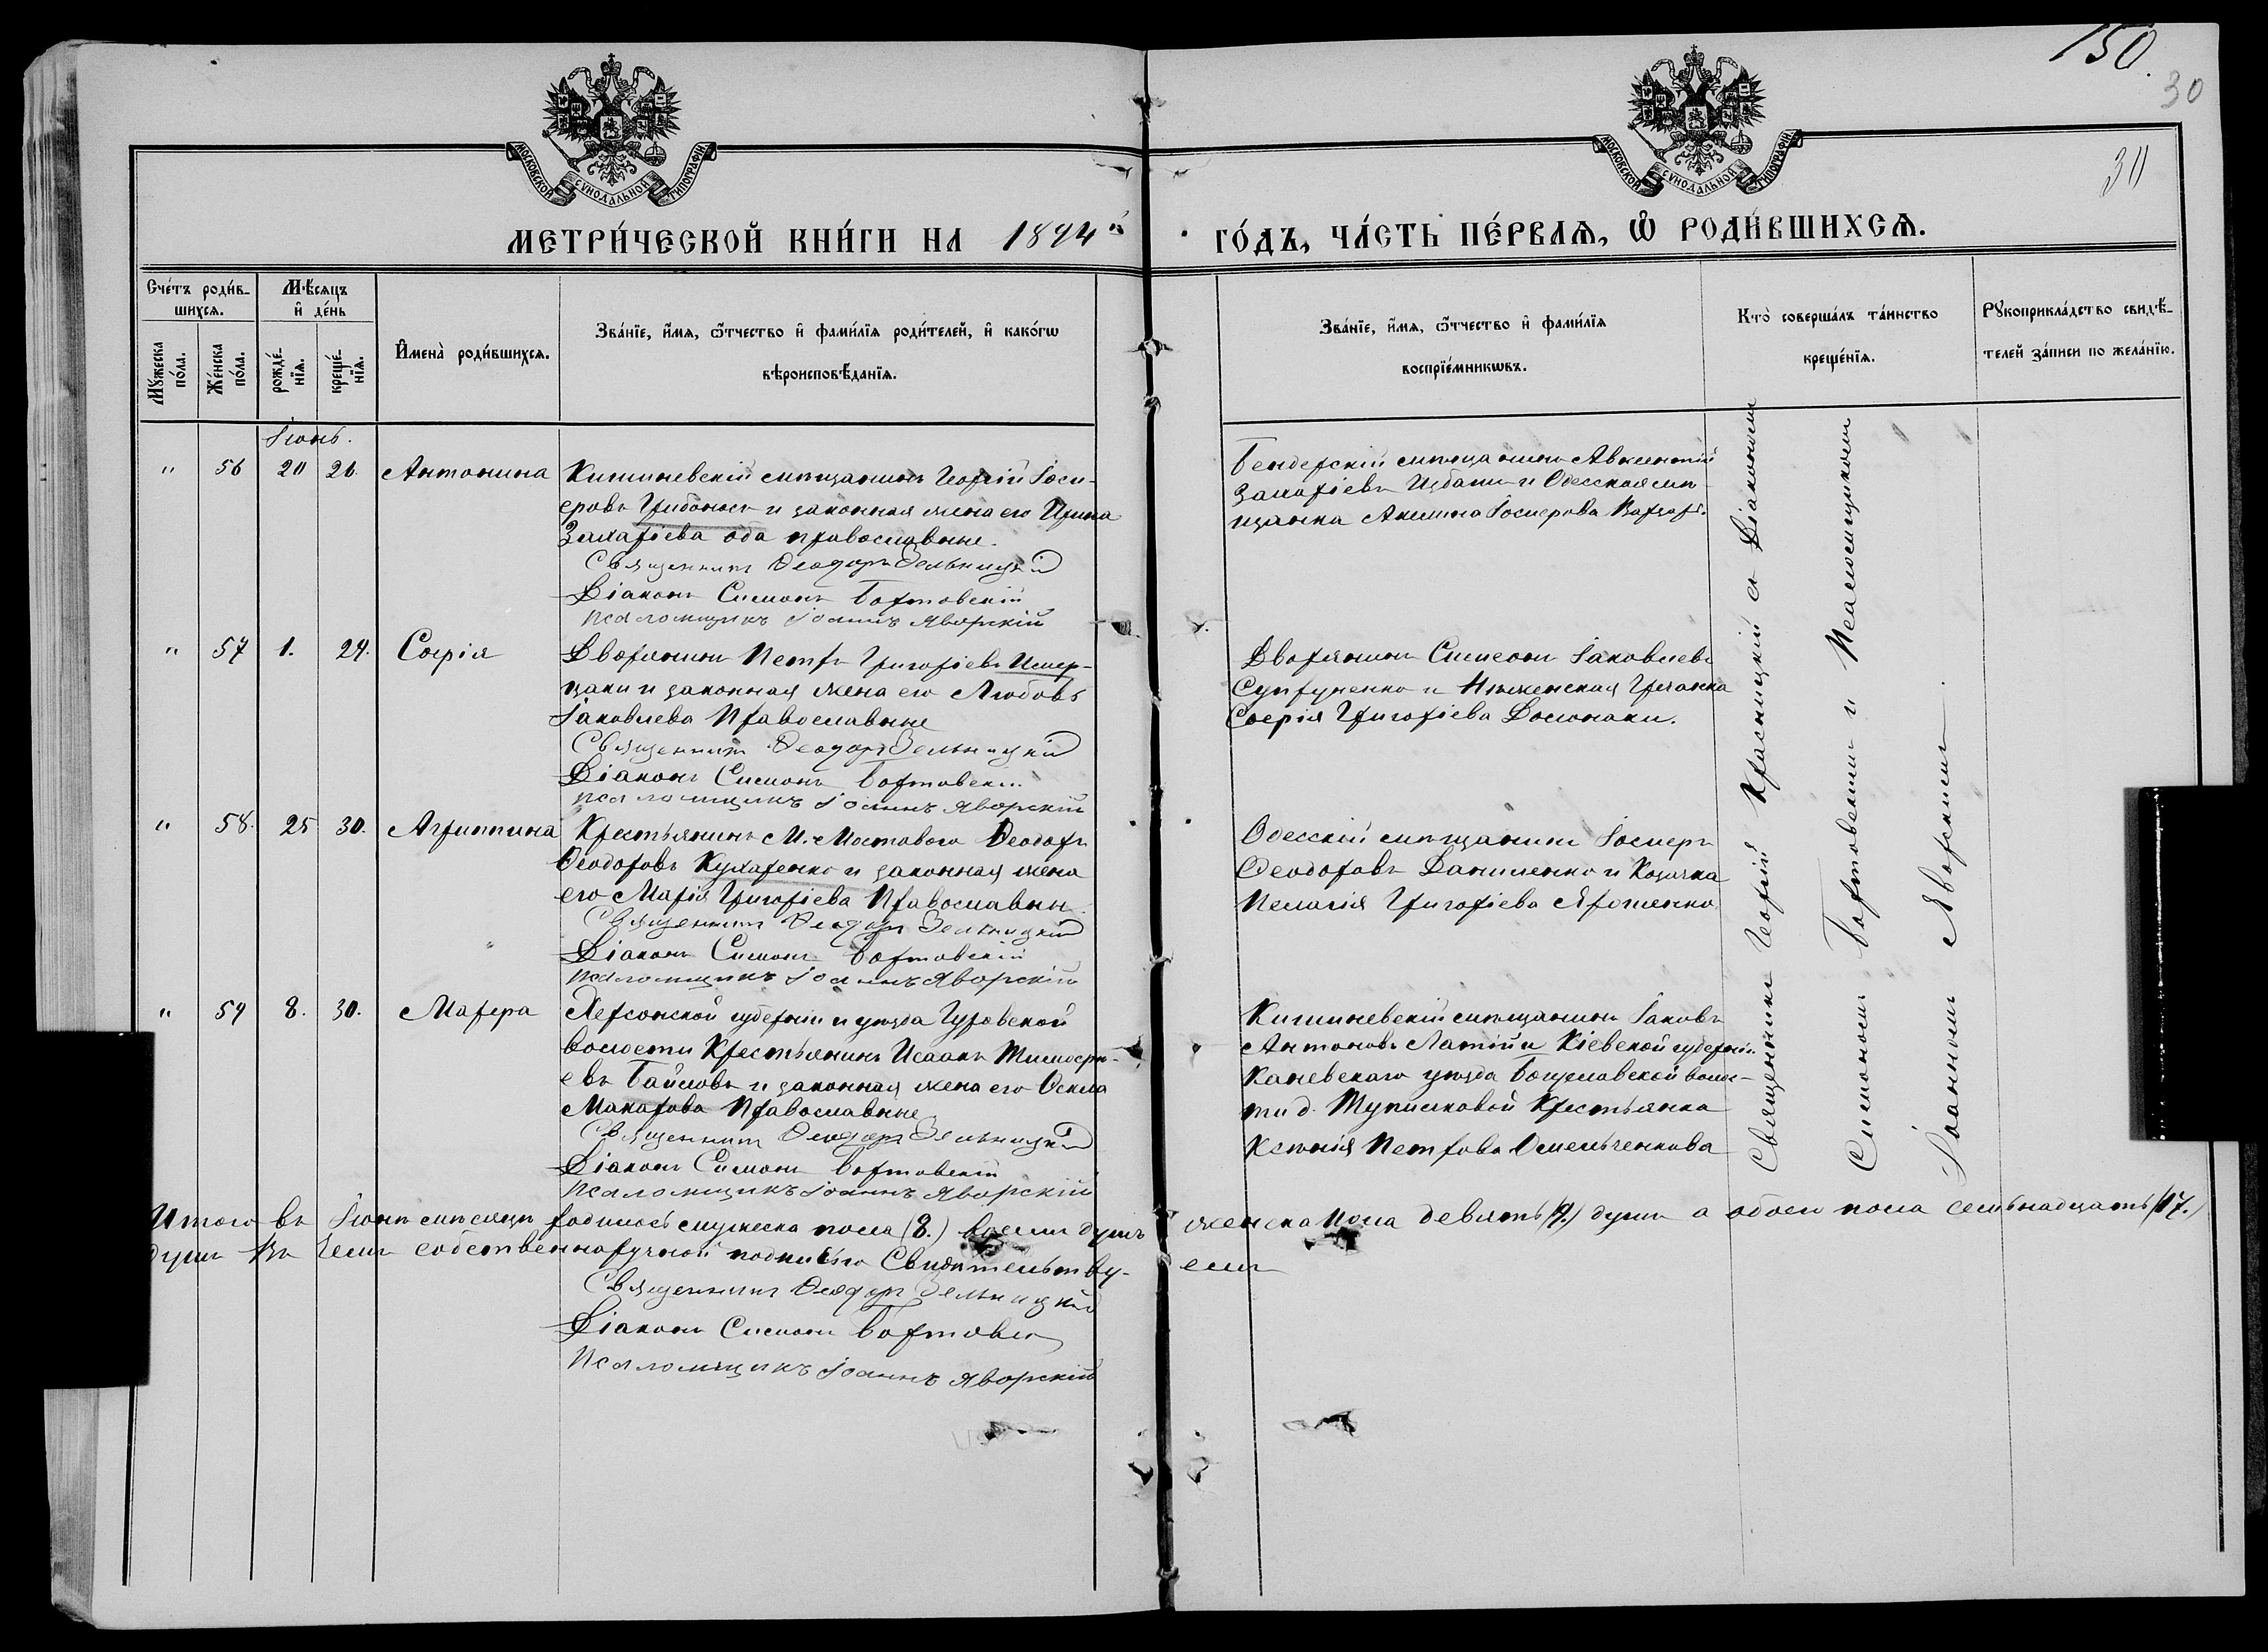 150.
30
30
МОСКОВСКОЙ СѴНОДАЛЬНОЙ ТИПОГРАФІИ
МОСКОВСКОЙ СѴНОДАЛЬНОЙ ТИПОГРАФІИ
МЕТРИ́ЧЕСКОЙ КНИ́ГИ НА 1894й ГО́ДЪ, ЧА́СТЬ ПЕ́РВАѦ, Ѡ РОДИ́ВШИХСѦ.
Сче́тъ роди́в-
шихсѧ.
Мꙋжеска по́ла.
Же́нска по́ла.
Мѣ́сяцъ
и҆ де́нь
рожде́-
нїѧ.
креще́-
нїѧ.
И҆мена̀ роди́вшихсѧ.
Зва́нїе, и҆́мѧ, ѻ҆́тчество и҆ фами́лїѧ роди́телей, и҆ како́гѡ
вѣроисповѣ́данїѧ.
Зва́нїе, и҆́мѧ, ѻ҆́тчество и҆ фами́лїѧ
воспрїе́мникѡвъ.
Кто̀ соверша́лъ та́инство
креще́нїѧ.
Рꙋкоприкла́дство свидѣ́-
телей за́писи по жела́нїю.
Іюнь.
" 56 20 26. Антонина
Кишиневскій мѣщанинъ Георгій Іоси-
еровъ и законная жена его Ирина
Захаріева оба православные.
Священникъ Ѳеодоръ Зельницкій
Діаконъ Симонъ Бортовскій
Псаломщикъ Іоаннъ Яворскій
Бендерскій мѣщанинъ Авксентій
Захаріевъ и Одесская мѣ-
щанка Акилина Іосиерова
" 57 1. 29. Софія
Дворянинъ Петръ Григоріевъ
и законная жена его Любовь
Іаковлева Православные
Священникъ Ѳеодоръ Зельницкій
Діаконъ Симонъ Бортовскій
Псаломщикъ Іоаннъ Яворскій
Дворянинъ Симеонъ Іаковлевъ
Супруненко и Нѣжинская Гречанка
Софія Григоріева
" 58. 25 30. Агриппина
Крестьянинъ М. Мостового Ѳеодоръ
Ѳеодоровъ Кухаренко и законная жена
его Марія Григоріева Православны
Священникъ Ѳеодоръ Зельницкій
Діаконъ Симонъ Бортовскій
Псаломщикъ Іоаннъ Яворскій
Одесскій мѣщанинъ Іосиеръ
Ѳеодоровъ Даниленко и Козачка
Пелагія Григоріева Ярошенко
" 59 8. 30. Марѳа
Херсонской губерніи и уѣзда Гуровской
волости Крестьянинъ Исаакъ Тимоѳе-
евъ Байловъ и законная жена его Ѳекла
Макарова Православные
Священникъ Ѳеодоръ Зельницкій
Діаконъ Симонъ Бортовскій
Псаломщикъ Іоаннъ Яворскій
Кишиневскій мѣщанинъ Іаковъ
Антоновъ Латій и Кіевской губерніи
Каневскаго уѣзда Богуславской волос-
ти д. Крестьянка
Ксенія Петрова Омельченкова
Священникъ Георгій Красницкій съ Діакономъ
Симономъ Бортовскимъ и Псаломщикомъ
Іоанномъ Яворскимъ.
Итого въ Іюнѣ мѣсяцѣ родилось мужеска пола (8.) восемь душъ женска пола девять (9.) душъ а обоего пола семьнадцать (17.)
душъ Въ чемъ собственноручной подписью Свидѣтельству- емъ
Священникъ Ѳеодоръ Зельницкій
Діаконъ Симонъ Бортовск
Псаломщикъ Іоаннъ Яворскій